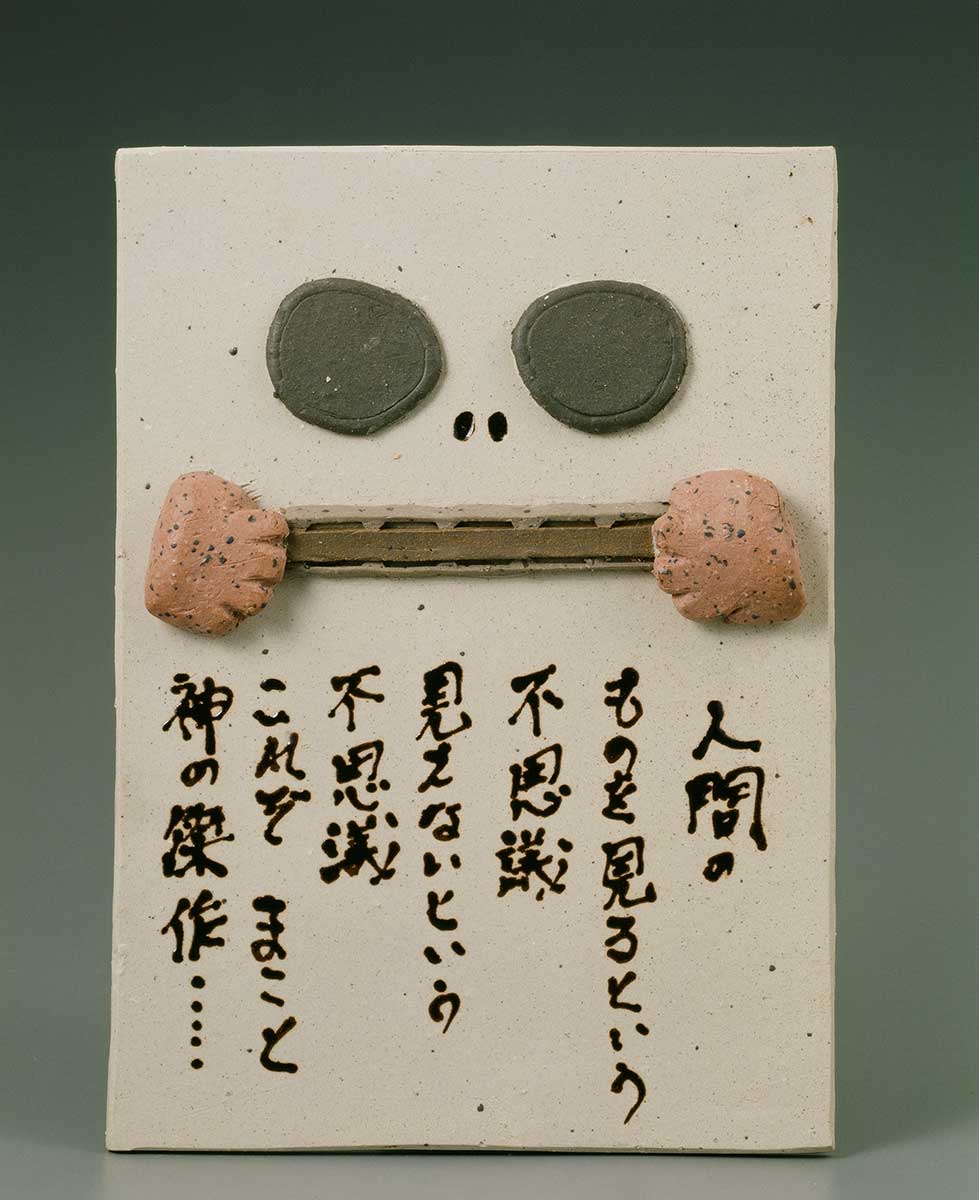 人間の
ものを見るという
不思議
見えないという
不思議
これぞ まこと
神の傑作……